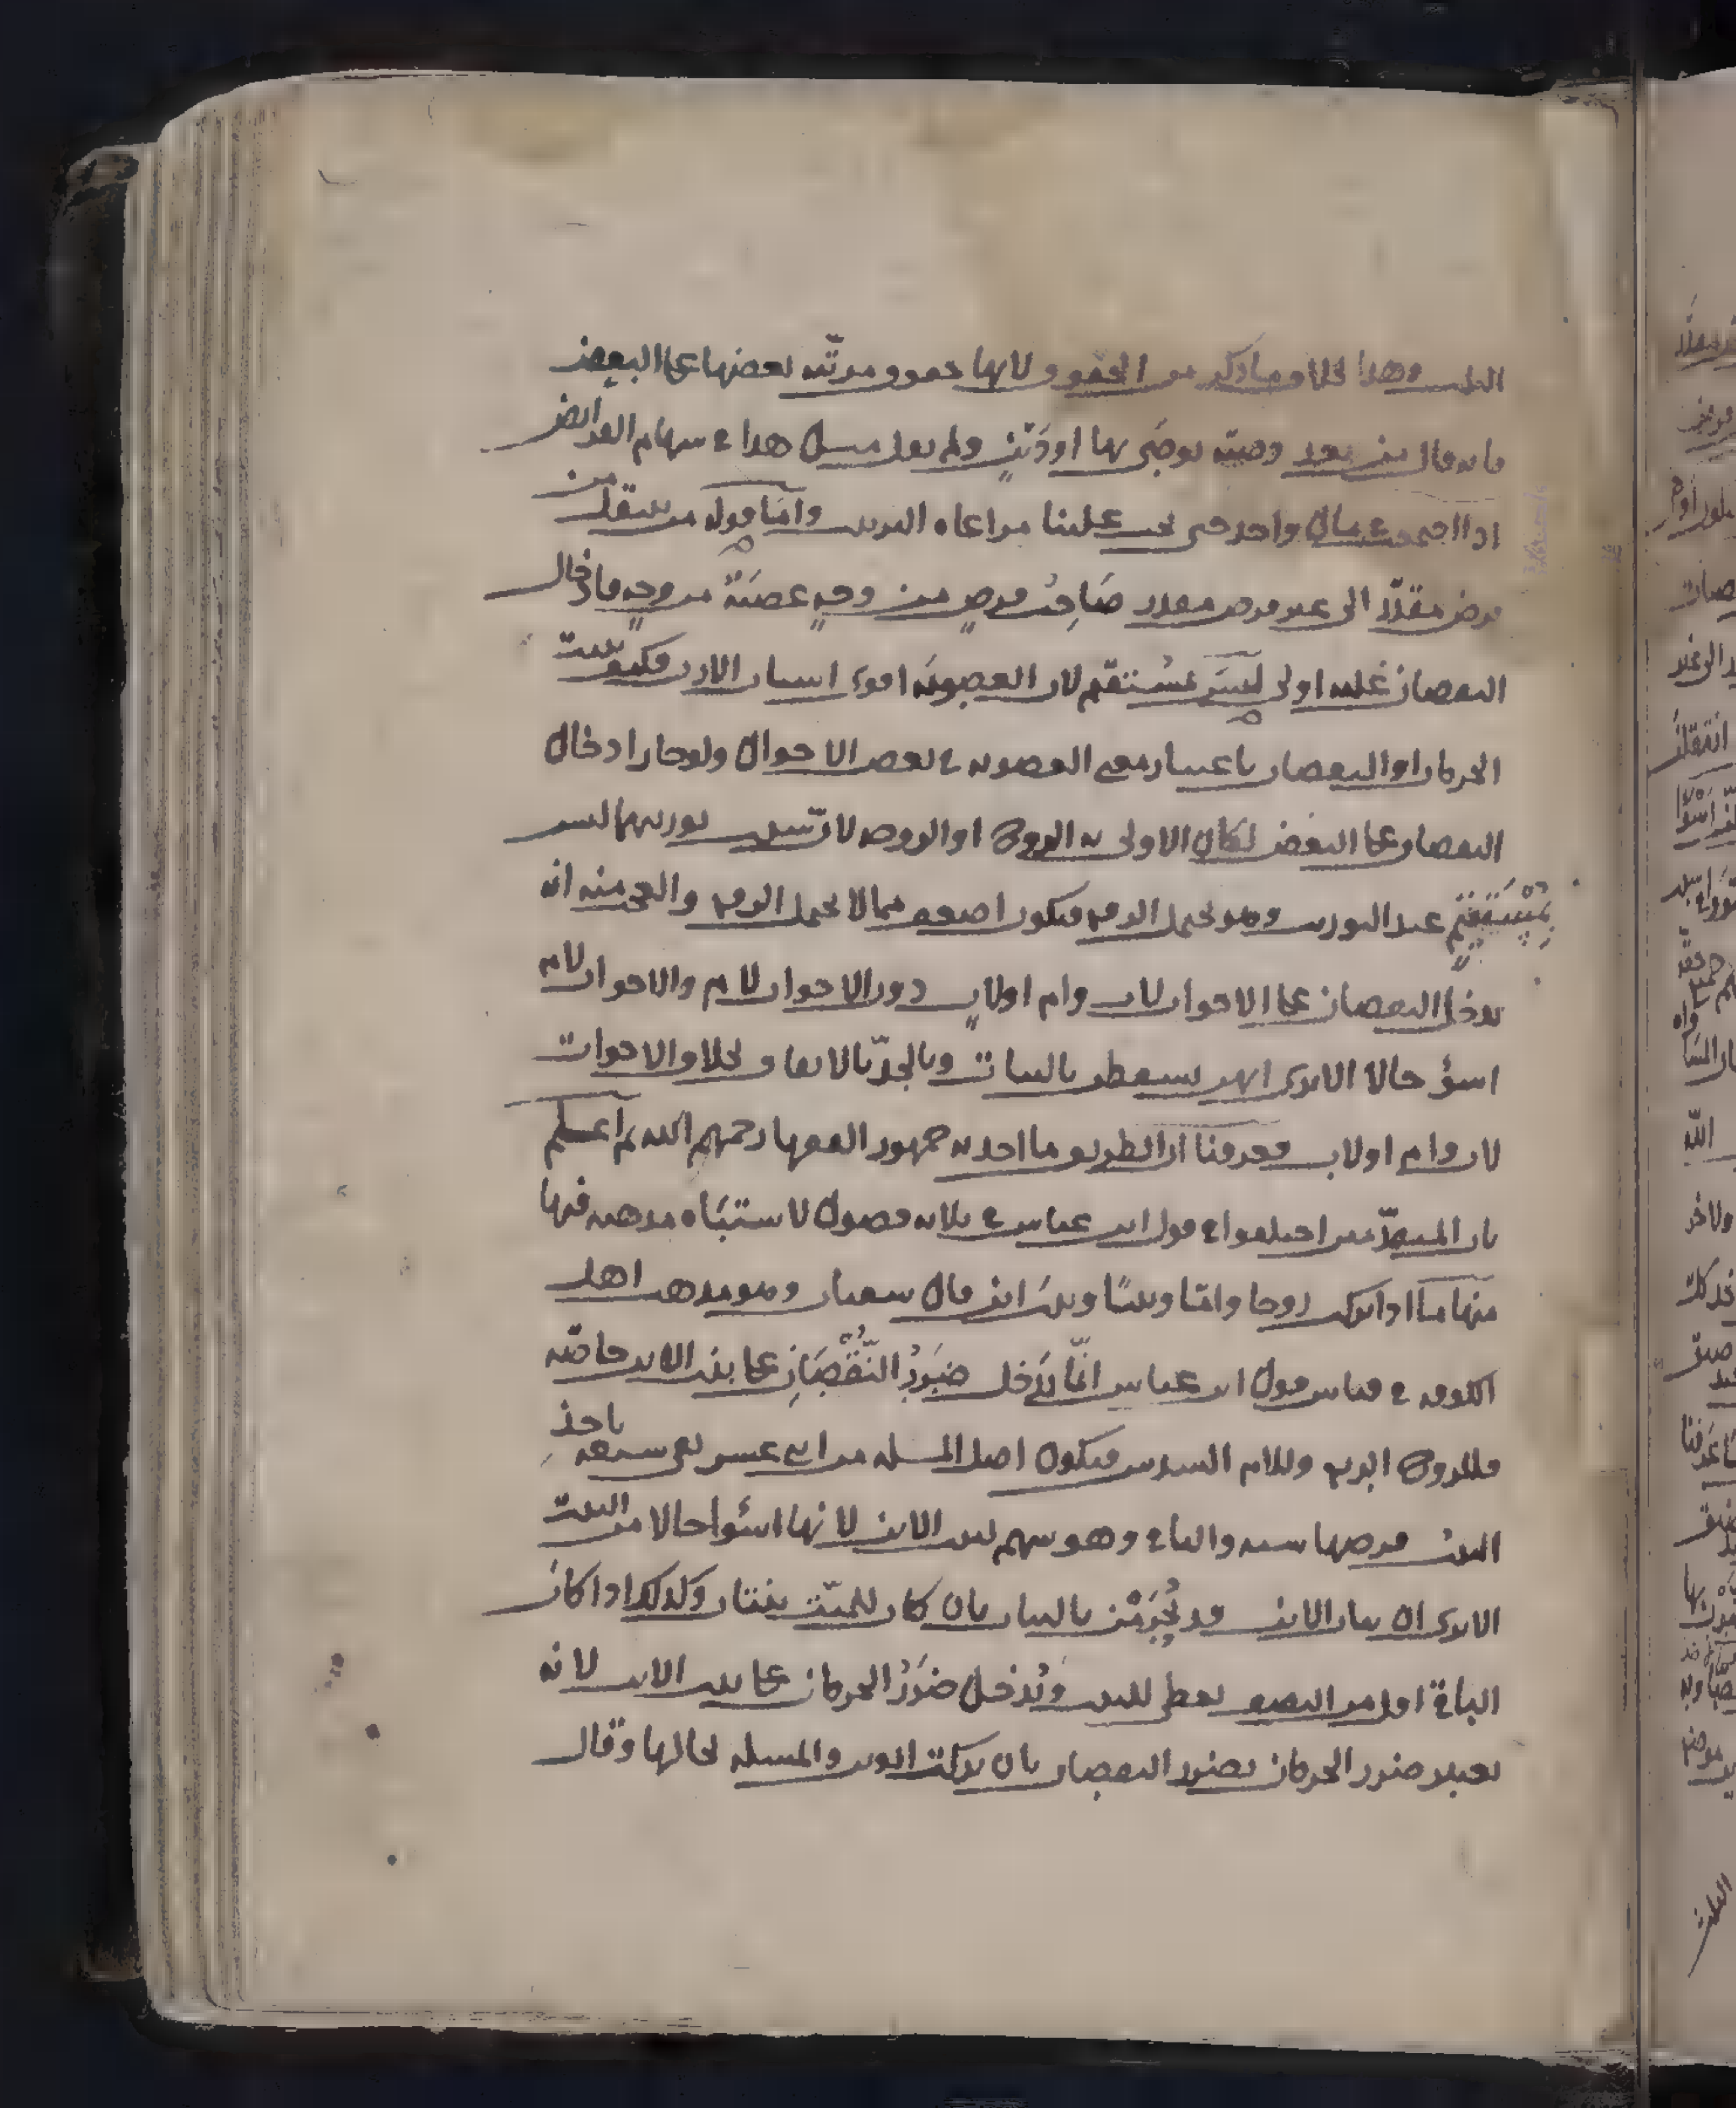 الثلث وهذا بخلاف ما ذكر من الحقوق لانها حقوق مرتبة بعضها على البعض
فانه قال من بعد وصية يوصى بها او دين ولم يقل مثل هذا في سهام الفرائض
اذا اجتمعت في مال واحد حتى يجب علينا مراعاة الترتيب واما قوله من ينتقل من
فرض مقدر الى غير فرض مقدر صاحب فرض من وجه عصبة من وجه فادخال
النقصان عليه اولى ليس بمستقيم لان العصوبة اقوى اسباب الارث فكيف يثبت
الحرمان او النقصان باعتبار معنى العصوبة في بعض الاحوال ولو جاز ادخال
النقصان على البعض لكان الاولى به الزوج او الزوجة لان سبب توريثهما ليس
بمستقيم عند التوريث وهو يحتمل الرفع فيكون اضعف مما لا يحتمل الرفع والعجب منه انه
يدخل النقصان على الاخوات لاب وام او لاب دون الاخوات لام والاخوات لام
اسؤ حالا الا ترى انهن يسقطن بالبنات وبالجد بالاتفاق بخلاف الاخوات
لاب وام او لاب فعرفنا ان الطريق ما اخذ به جمهور الفقهاء رحمهم الله ثم اعلم
بان المتقدمين اختلفوا في قول ابن عباس في ثلاثة فصول لاشتباه مذهبه فيها
منها ما اذا ترك زوجا واما وبنتا وبنت ابن قال سفيان وهو مذهب اهل
الكوفة في قياس قول ابن عباس انما يدخل ضرر النقصان على بنت الابن خاصة
فللزوج الربع وللام السدس فيكون اصل المسئلة من اثنى عشر بقي سبعة ياخذ
البنت فرضها ستة والباقي وهو سهم لبنت الابن لانها اسؤا حالا من البنت
الا ترى ان بنات الابن قد يحرمن بالبنات بان كان للميت بنتان وكذلك اذا كان
الباقي اقل من النصف يعطى للبنت ويدخل ضرر الحرمان على بنت الابن لانه
يعتبر ضرر الحرمان بضرر النقصان بان تركت ابوين والمسئلة بحالها وقال